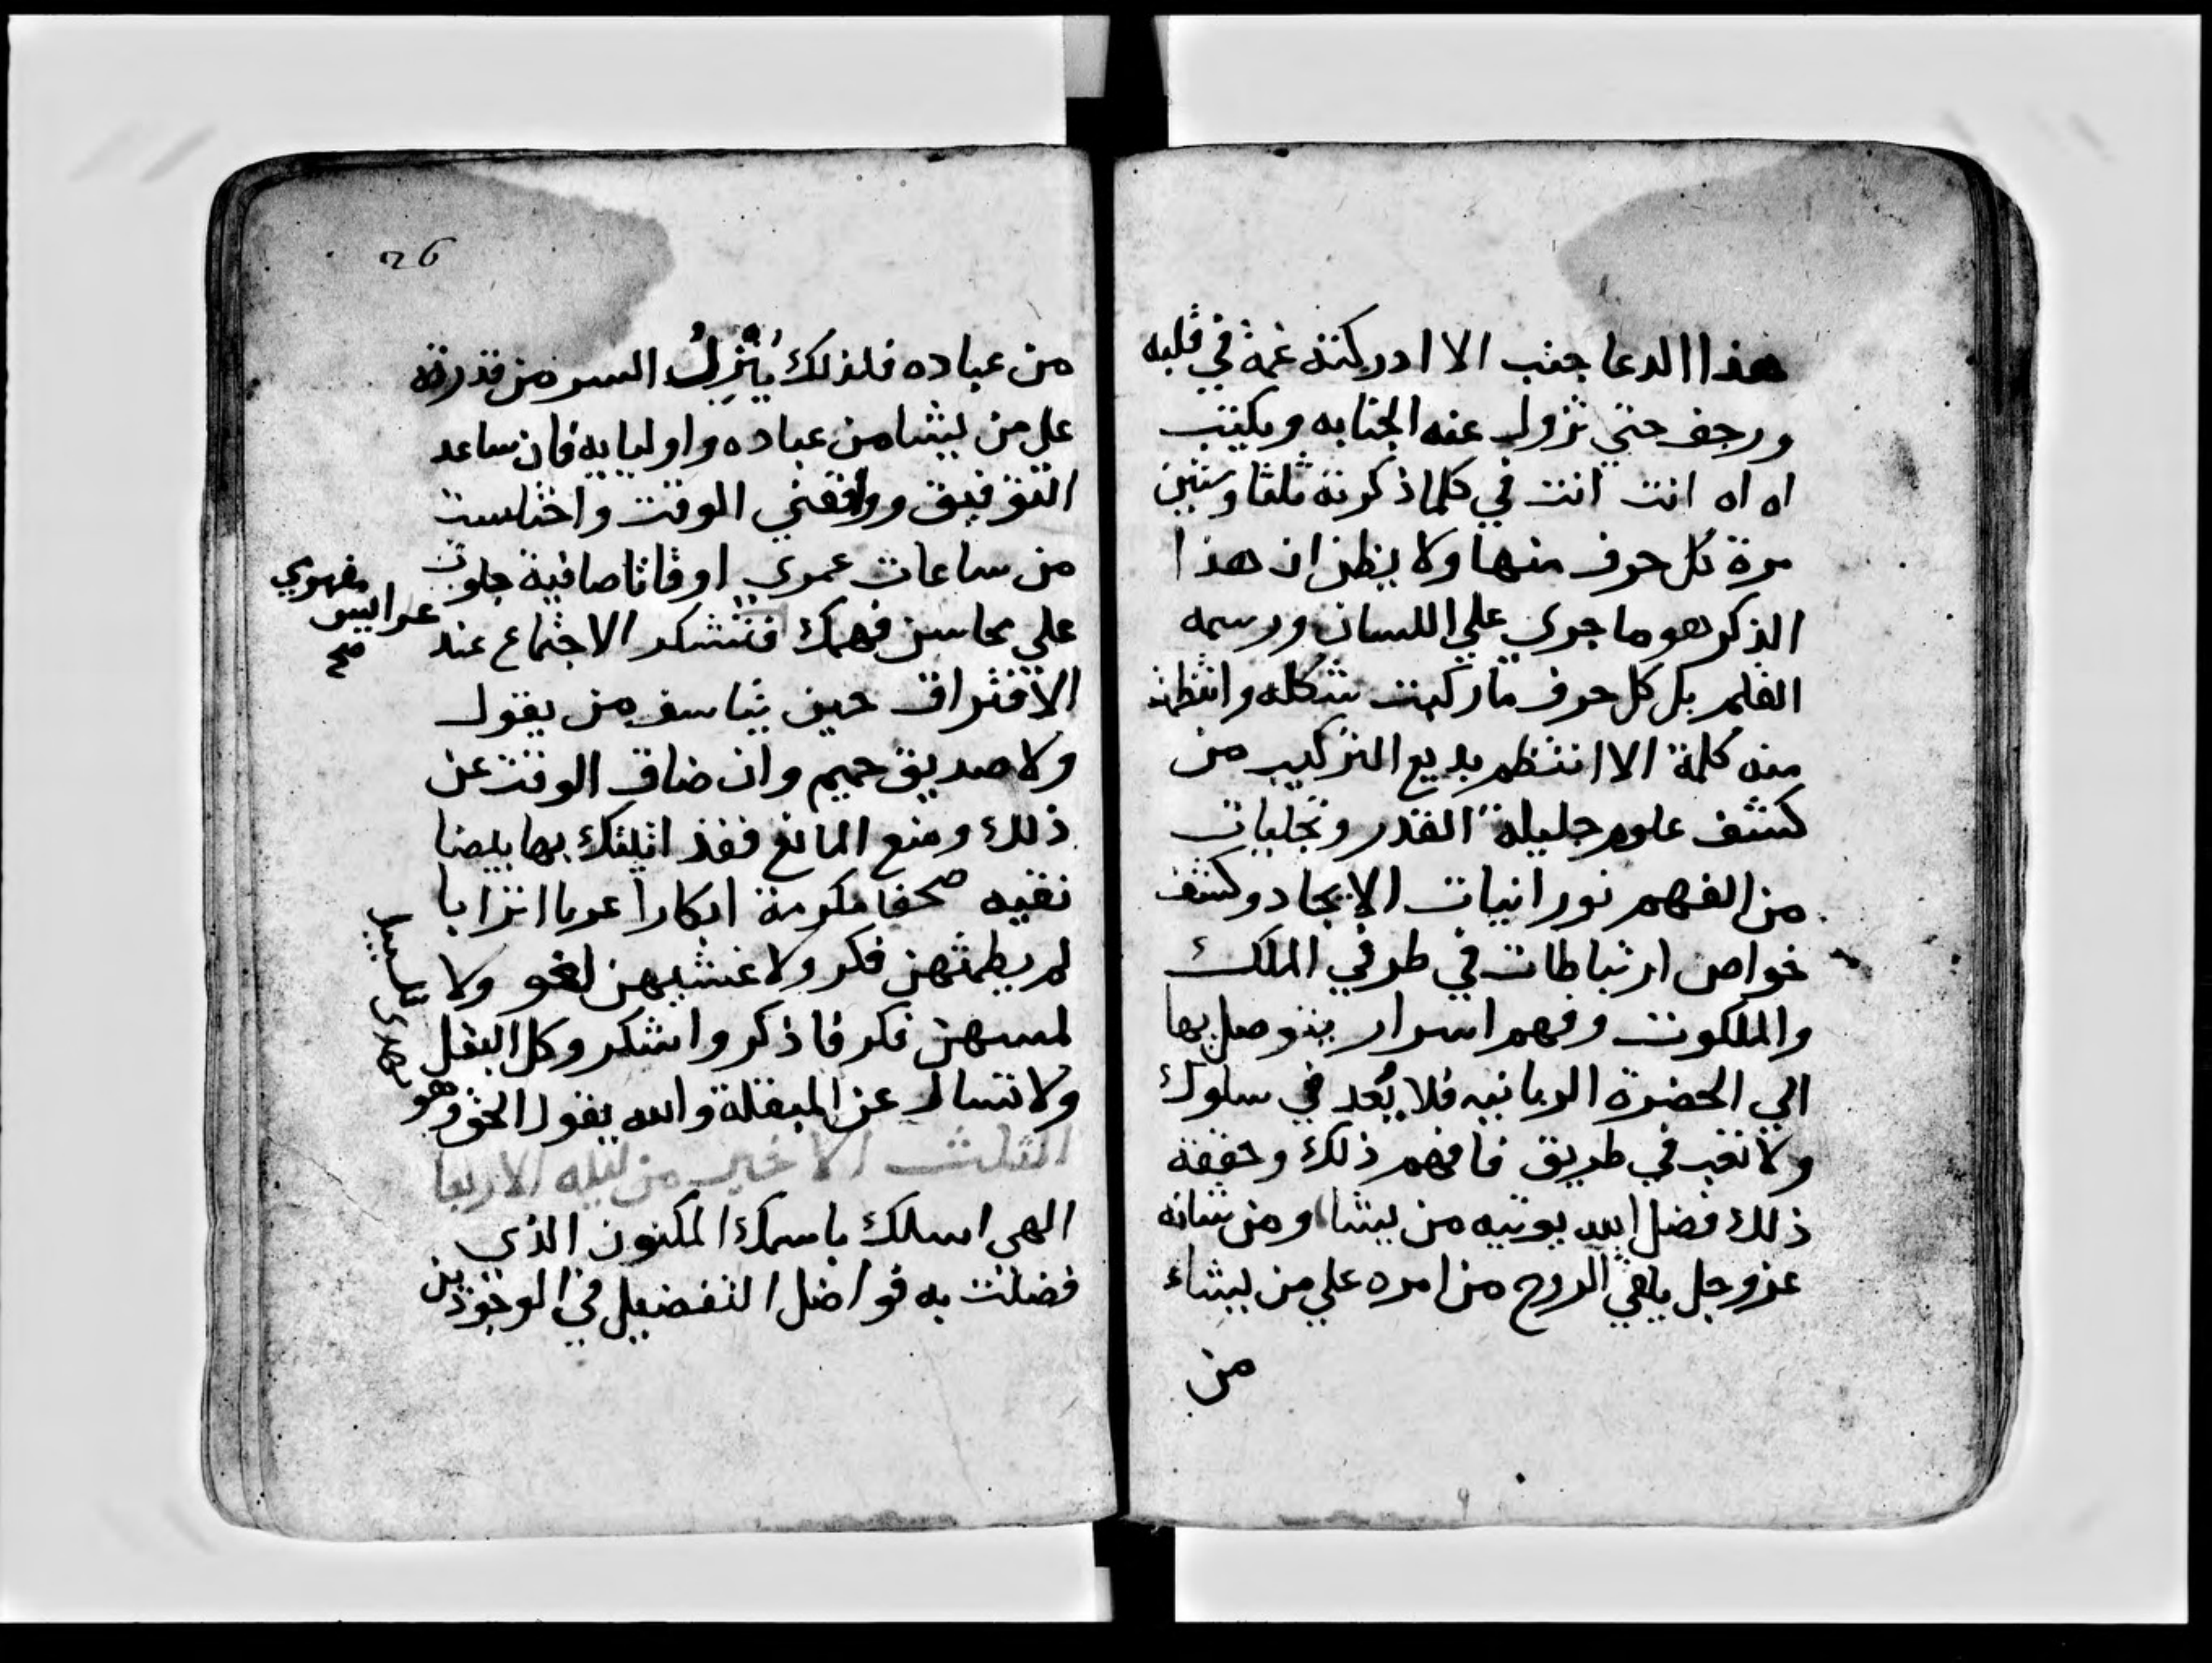 هذا الدعا جنب الا ادركته غمة في قلبه
ورجف حتي تزول عنه الجنابه ويكتب
اه اه انت انت في كلما ذكرته ثلثا وستين
مرة كل حرف منها ولا يظن ان هذا
الذكر هو ما جري علي اللسان ورسمه
القلم بل كل حرف ما ركبت شكله وانتظمت
منه كلمة الا انتظم بديع التركيب من
كشف علوم جليلة القدر وتجليات
من الفهم نورانيات الايجاد وكشف
خواص ارتباطات في طرفي الملك
والملكوت وفهم اسرار يتوصل بها
الي الحضرة الربانيه فلا بُعد في سلوك
ولا تعب في طريق فافهم ذلك وحققه
ذلك فضل الله يوتيه من يشا ومن شانه
عز وجل يلقي الروح من امره علي من يشاء
من
26
من عباده فلذلك يُنْزِلُ السر من قدرته
علي من يشا من عباده واوليايه فان ساعد
التوفيق ووافقني الوقت واختلست
من ساعات عمري اوقاتا صافية جلوت
عرايس
صح
علي محاسن فهمك فتشكر الاجتماع عند
الافتراق حين يتاسف من يقول
ولا صديق حميم وان ضاق الوقت عن
ذلك ومنع المانع فقد اتيتك بها بيضا
نقيه صحفا مكرمة ابكارا عربا اترابا
لم يطمثهن فكر ولا غشيهن لغو ولا
لمسهن فكر فاذكر واشكر وكل البقل
ولا تسال عن المبقلة والله يقول الحق وهو
يهدي السبيل
الثلث الاخير من ليله الاربعا
الهي اسالك باسمك المكنون الذي
فضلت به فواضل التفضيل في الوجودين